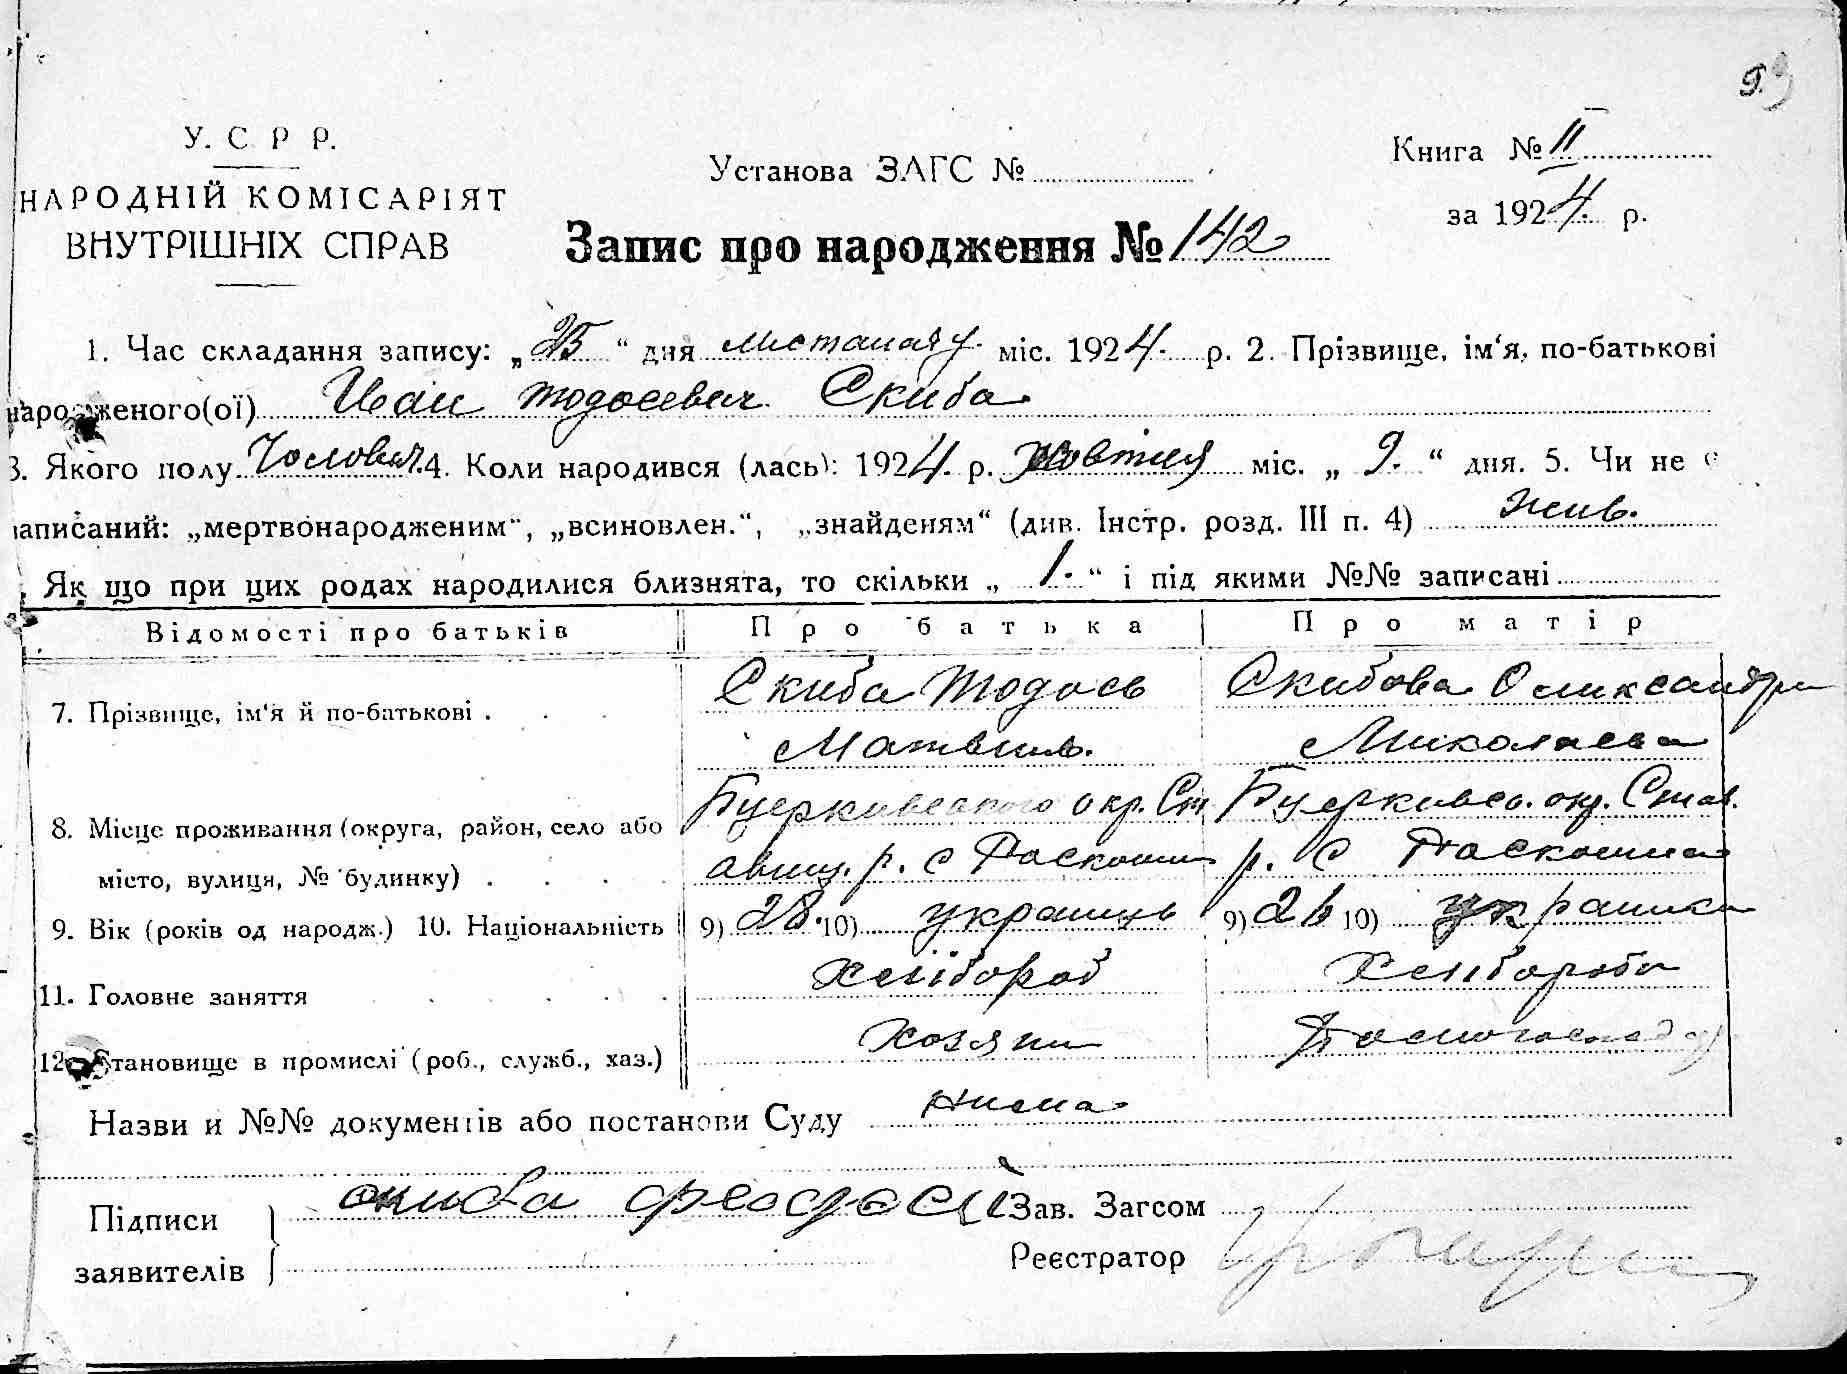 9.
У. С. Р. Р.
НАРОДНІЙ КОМІСАРІЯТ
ВНУТРІШНІХ СПРАВ
Установа ЗАГС №
Книга № II
за 1924 р.
Запис про народження № 142
1. Час складання запису: „25“ дня листопаду міс. 1924. р. 2. Прізвище, ім'я, по-батькові
народженого(ої) Иван Тодосевич Скиба
3. Якого полу Чоловіч. 4. Коли народився (лась): 1924. р. жовтня міс. „ 9. “ дня. 5. Чи не є
записаний: „мертвонародженим“, „всиновлен.“, „знайденям“ (див. Інстр. розд. III п. 4) жив.
Як що при цих родах народилися близнята, то скільки „ 1. “ і під якими №№ записані
Відомості про батьків Про батька Про матір
7. Прізвище, ім'я й по-батькові . Скиба Тодось Скибова Оликсандра
Матвиив. Миколаєва
8. Місце проживання (округа, район, село або Бцерківського окр. Ст Бцерківсь. окр. Став.
місто, вулиця, № будинку) . авищ. р. с Роскошна р. с Роскошная
9. Вік (років од народж.) 10. Національність 9) 28. 10) украинць 9) 26 10) украинка
11. Головне заняття Хлібороб Хлибороба
12. Становище в промислі (роб., служб., хаз.) Хозяин
Назви и №№ документів або постанови Суду нима
Підписи заявителів скиба феодосій
Зав. Загсом
Реєстратор